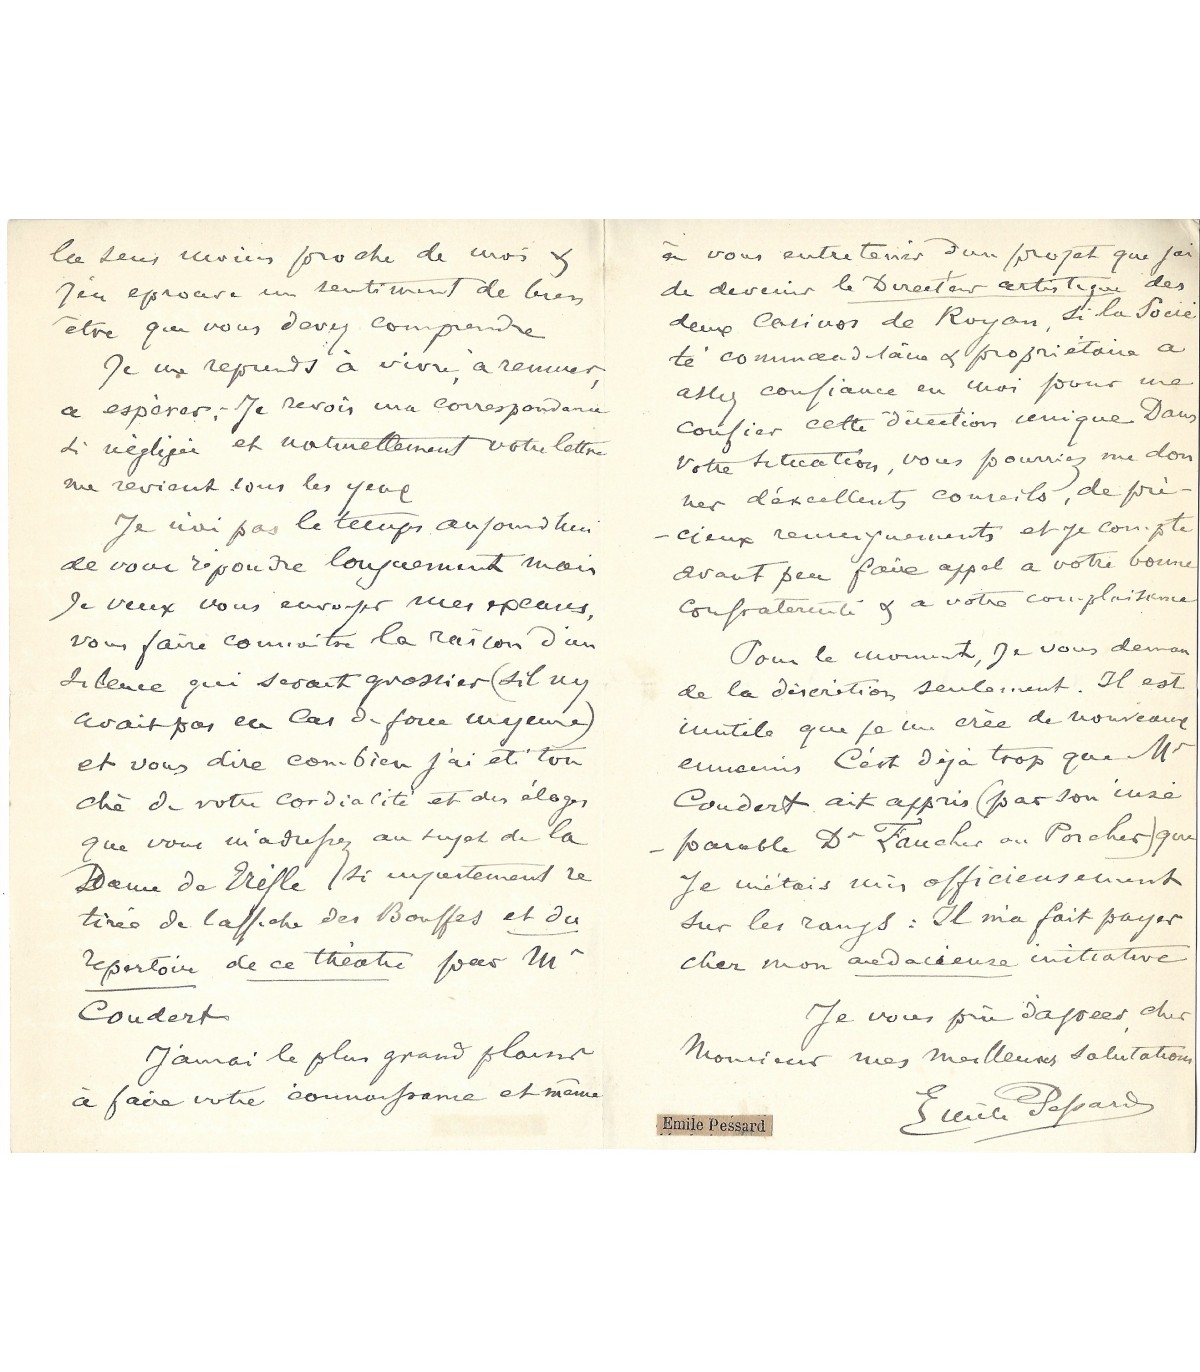 la sens moins proche de moi &
j'en eprouve un sentiment de bien
être que vous devez comprendre
Je me reprends à vivre, à remuer,
a espèrer; Je revois ma correspondance
si négligée et naturellement votre lettre
me revient sous les yeux
Je n'ai pas le temps aujourd'hui
de vous répondre longuement mais
Je veux vous envoyer mes excuses,
vous faire connaitre la raison d'un
silence qui serait grossier (s'il n'y
avait pas eu cas de force majeure)
et vous dire combien j'ai eté tou
ché de votre cordialité et des éloges
que vous m'adressez au sujet de la
Dame de Trèfle (si injustement re
tirée de l'affiche des Bouffes et du
repertoire de ce théatre par Mr
Coudert
J'aurai le plus grand plaisir
à faire votre connaissance et même
à vous entretenir d'un projet que j'ai
de devenir le Directeur artistique des
deux Casinos de Royan, si la Socié
té commanditaire & propriétaire a
assez confiance en moi pour me
confier cette direction unique Dans
votre situation, vous pourriez me don
ner d'éxcellents conseils, de pré-
-cieux renseignements et je compte
avant peu faire appel a votre bonne
confraternité & a votre complaisance
Pour le moment, Je vous deman
de la discrétion seulement. Il est
inutile que je me crée de nouveaux
ennemis C'est déjà trop que Mr
Coudert ait appris (par son insé
-parable Dr Faucher ou Porcher) que
Je m'étais mis officieusement
sur les rangs : Il m'a fait payer
cher mon audacieuse initiative
Je vous prie d'agréer, cher
Monsieur mes meilleures salutations
Emile Pessard
Emile Pessard